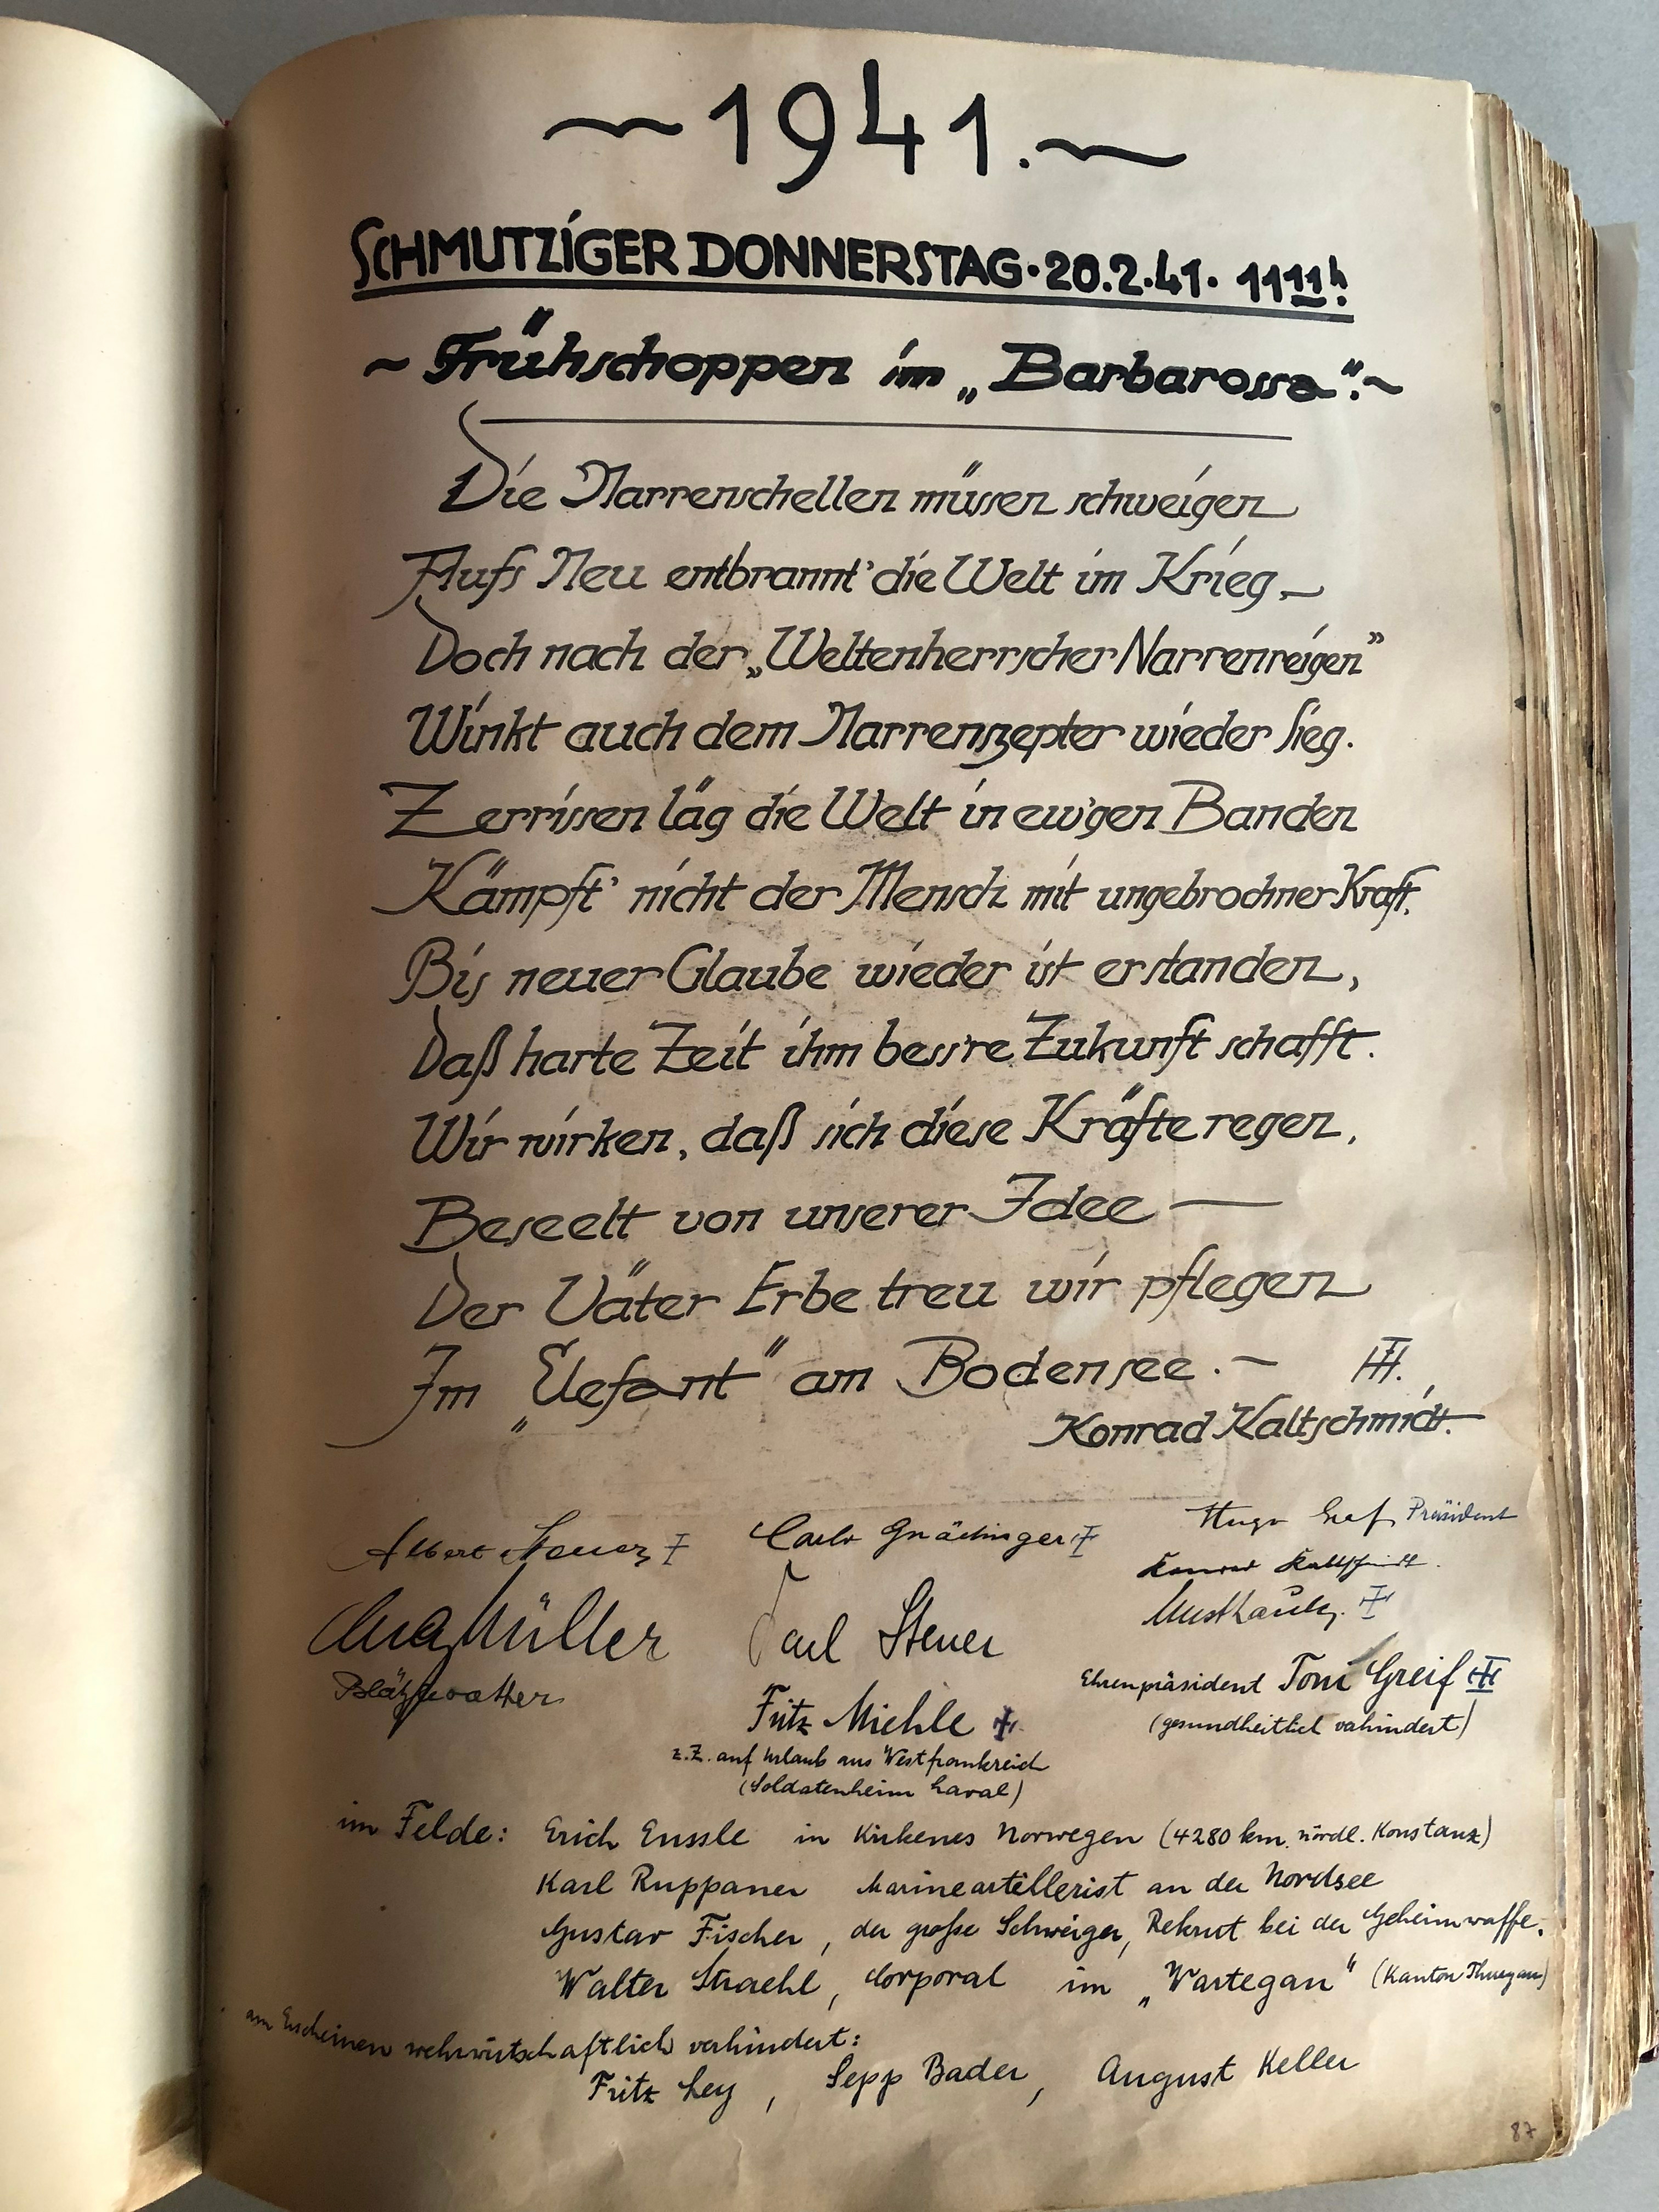 ~ 1941. ~
SCHMUTZIGER DONNERSTAG · 20.2.41. 11 11 h!
~ Frühschoppen im „Barbarossa". ~
Die Narrenschellen müssen schweigen
Aufs Neu entbrannt' die Welt im Krieg. –
Doch nach der „Weltenherrscher Narrenreigen"
Winkt auch dem Narrenszepter wieder Sieg.
Zerrissen läg die Welt in ew'gen Banden
Kämpft' nicht der Mensch mit ungebrochner Kraft.
Bis neuer Glaube wieder ist erstanden,
Daß harte Zeit ihm bess're Zukunft schafft.
Wir wirken, daß sich diese Kräfte regen,
Beseelt von unserer Idee —
Der Väter Erbe treu wir pflegen
Im „Elefant" am Bodensee. –
Konrad Kaltschmidt.
Albert Steuer Carlo Gnädinger Hugo Graf, Präsident
Konrad Kaltschmidt.
Müller Carl Steuer
Blätzlevatter
Ehrenpräsident Toni Greif
(gesundheitlich verhindert)
Fritz Miehle
z.Z. auf Urlaub aus Westfrankreich
(Soldatenheim Laval)
im Felde: Erich Eussle in Kirkenes Norwegen (4280 km. nördl. Konstanz)
Karl Ruppaner Marineartillerist an der Nordsee
Gustav Fischer, der große Schweiger, Rekrut bei der Geheimwaffe.
Walter Straehl, Corporal im „Wartegau" (Kanton Thurgau)
am Erscheinen wehrwirtschaftlich verhindert:
Fritz Ley, Sepp Bader, August Keller
87